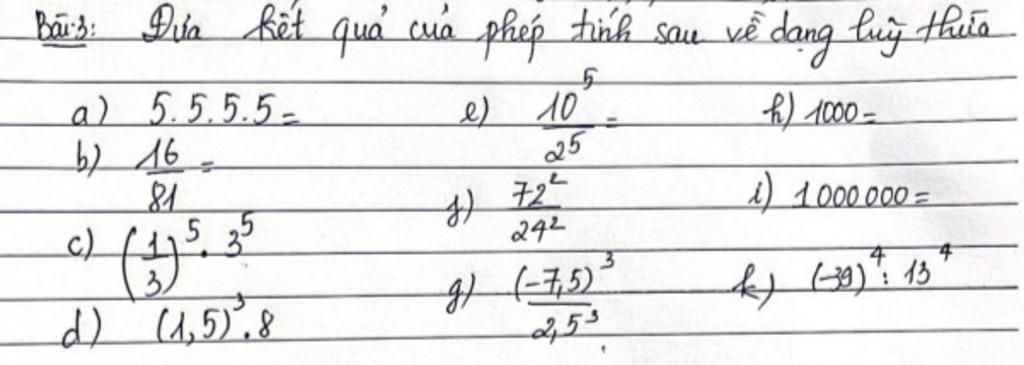 Bài 3: Đưa kết quả của phép tính sau về dạng luỹ thừa
a) 5.5.5.5 =
b) 16/81 =
c) (1/3)^5 . 3^5
d) (1,5)^3 . 8
e) 10^5/2^5 =
f) 72^2/24^2
g) (-7,5)^3/2,5^3
h) 1000 =
i) 1000000 =
k) (-39)^4 : 13^4